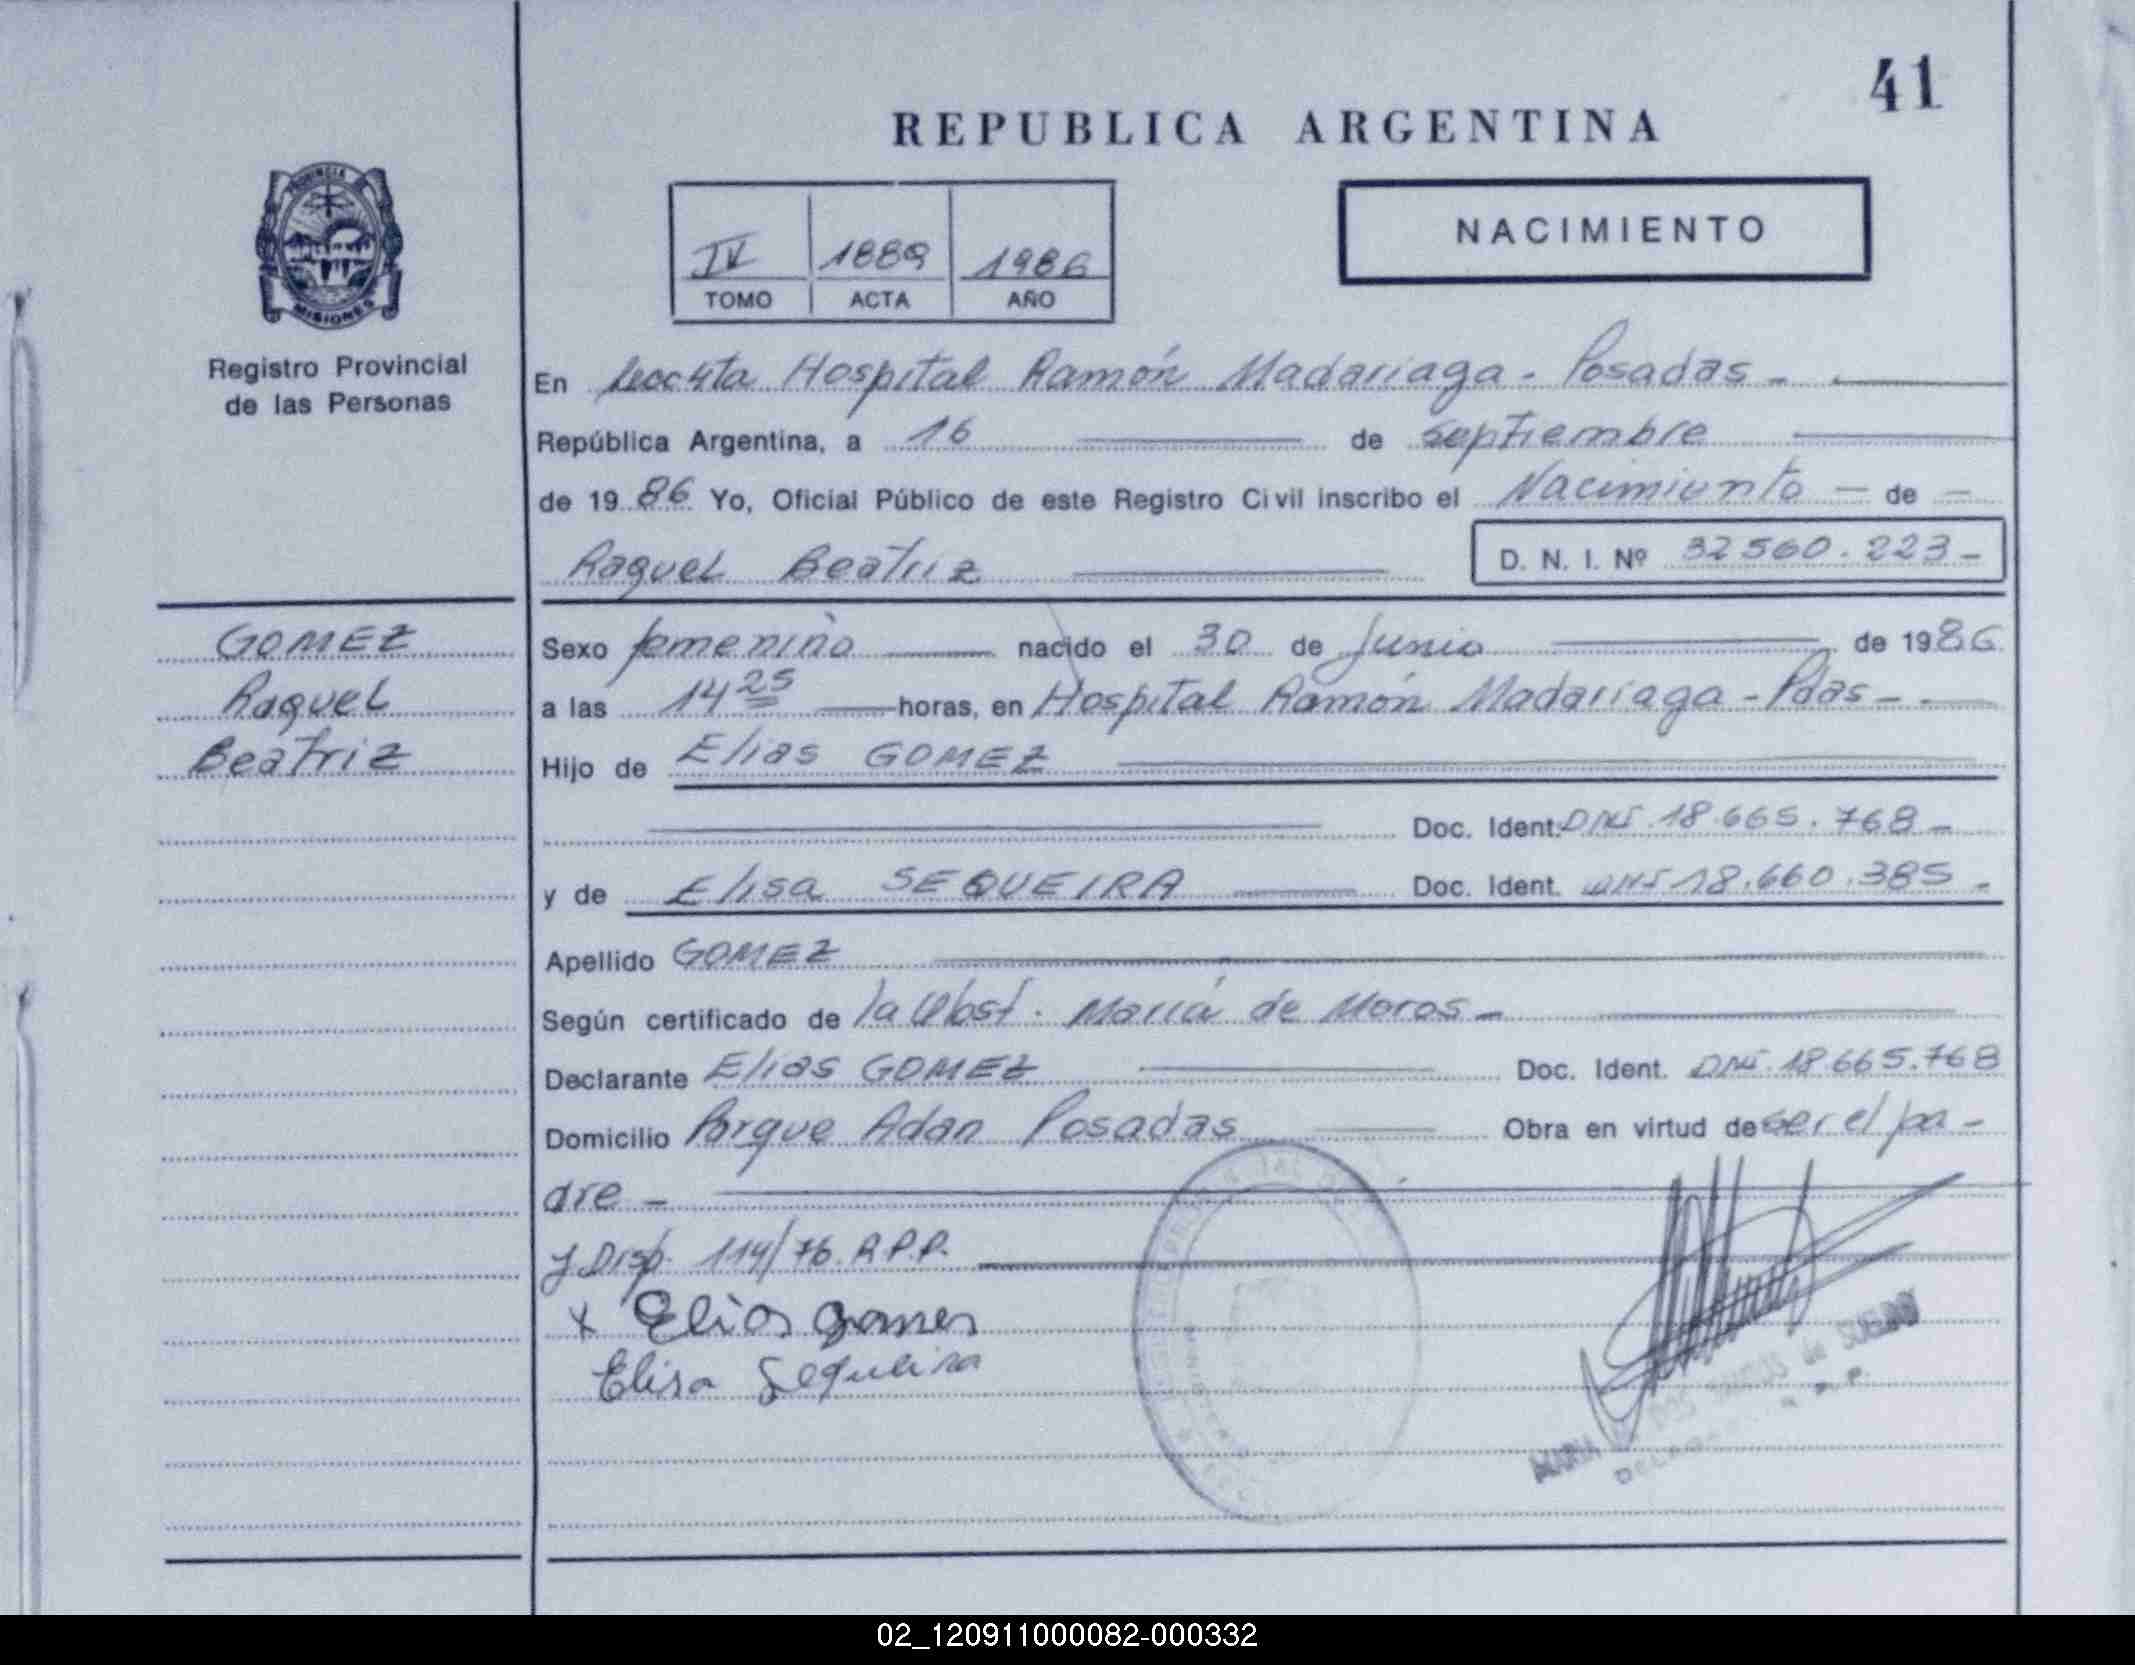 41
REPUBLICA ARGENTINA
IV 1889 1986
TOMO ACTA AÑO
NACIMIENTO
PROVINCIA DE
MISIONES
Registro Provincial
de las Personas
En Hospital Ramón Madariaga - Posadas -
República Argentina, a 16 de septiembre
de 1986 Yo, Oficial Público de este Registro Civil inscribo el Nacimiento - de -
Raquel Beatriz D. N. I. Nº 32560.223-
GOMEZ
Raquel
Beatriz
Sexo femenino nacido el 30 de Junio de 1986
a las 14 25 horas, en Hospital Ramón Madariaga - Pdas -
Hijo de Elias GOMEZ
Doc. Ident. DNI 18.665.768 -
y de Elisa SEQUEIRA Doc. Ident. DNI 18.660.385 -
Apellido GOMEZ
Según certificado de la Obst. María de Moros -
Declarante Elias GOMEZ Doc. Ident. DNI. 18.665.768
Domicilio Parque Adan Posadas Obra en virtud de ser el pa-
dre -
y Disp. 114/76. R.P.P.
x Elias gomes
Elisa Sequeira
MARIA DOS SANTOS de
R. P. P.
02_120911000082-000332